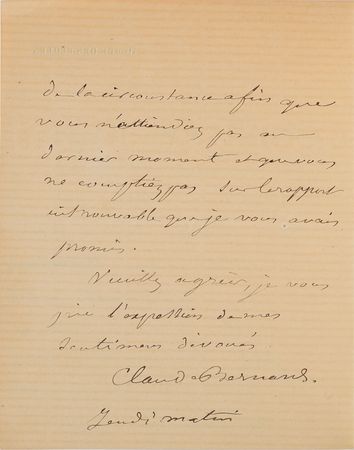 de la circonstance afin que
vous n'attendiez pas au
dernier moment et que vous
ne comptiez pas sur le rapport
introuvable que je vous avais
promis.
Veuillez agréer, je vous
prie l'expression de mes
sentimens dévoués.
Claude Bernard.
Jeudi matin